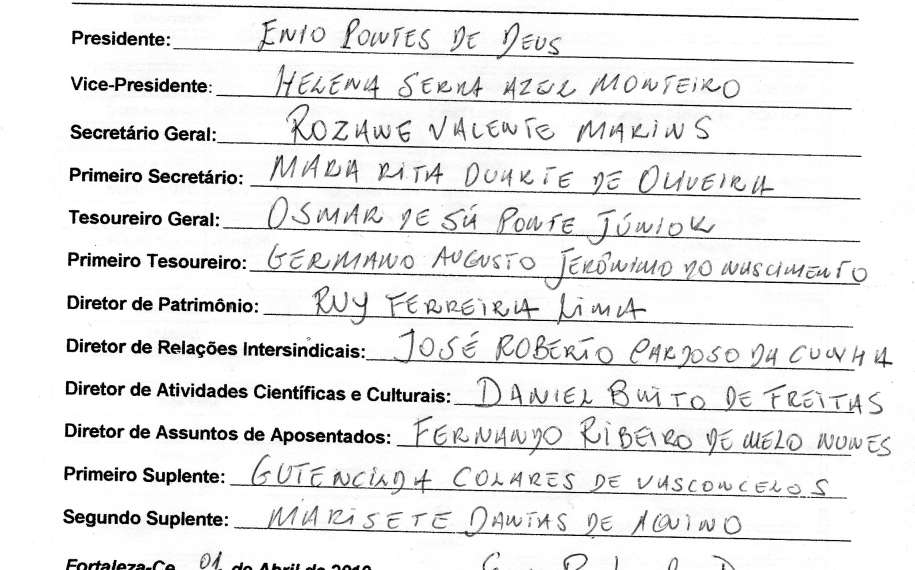 Presidente: ENIO PONTES DE DEUS
Vice-Presidente: HELENA SERRA AZUL MONTEIRO
Secretário Geral: ROZANE VALENTE MARINS
Primeiro Secretário: MARIA RITA DUARTE DE OLIVEIRA
Tesoureiro Geral: OSMAR DE SÁ PONTE JÚNIOR
Primeiro Tesoureiro: GERMANO AUGUSTO JERÔNIMO DO NASCIMENTO
Diretor de Patrimônio: RUY FERREIRA LIMA
Diretor de Relações Intersindicais: JOSÉ ROBERTO CARDOSO DA CUNHA
Diretor de Atividades Científicas e Culturais: DANIEL BRITO DE FREITAS
Diretor de Assuntos de Aposentados: FERNANDO RIBEIRO DE MELO NUNES
Primeiro Suplente: COLARES DE VASCONCELOS
Segundo Suplente: MARISETE DANTAS DE AQUINO
Fortaleza-Ce 01 de Abril de